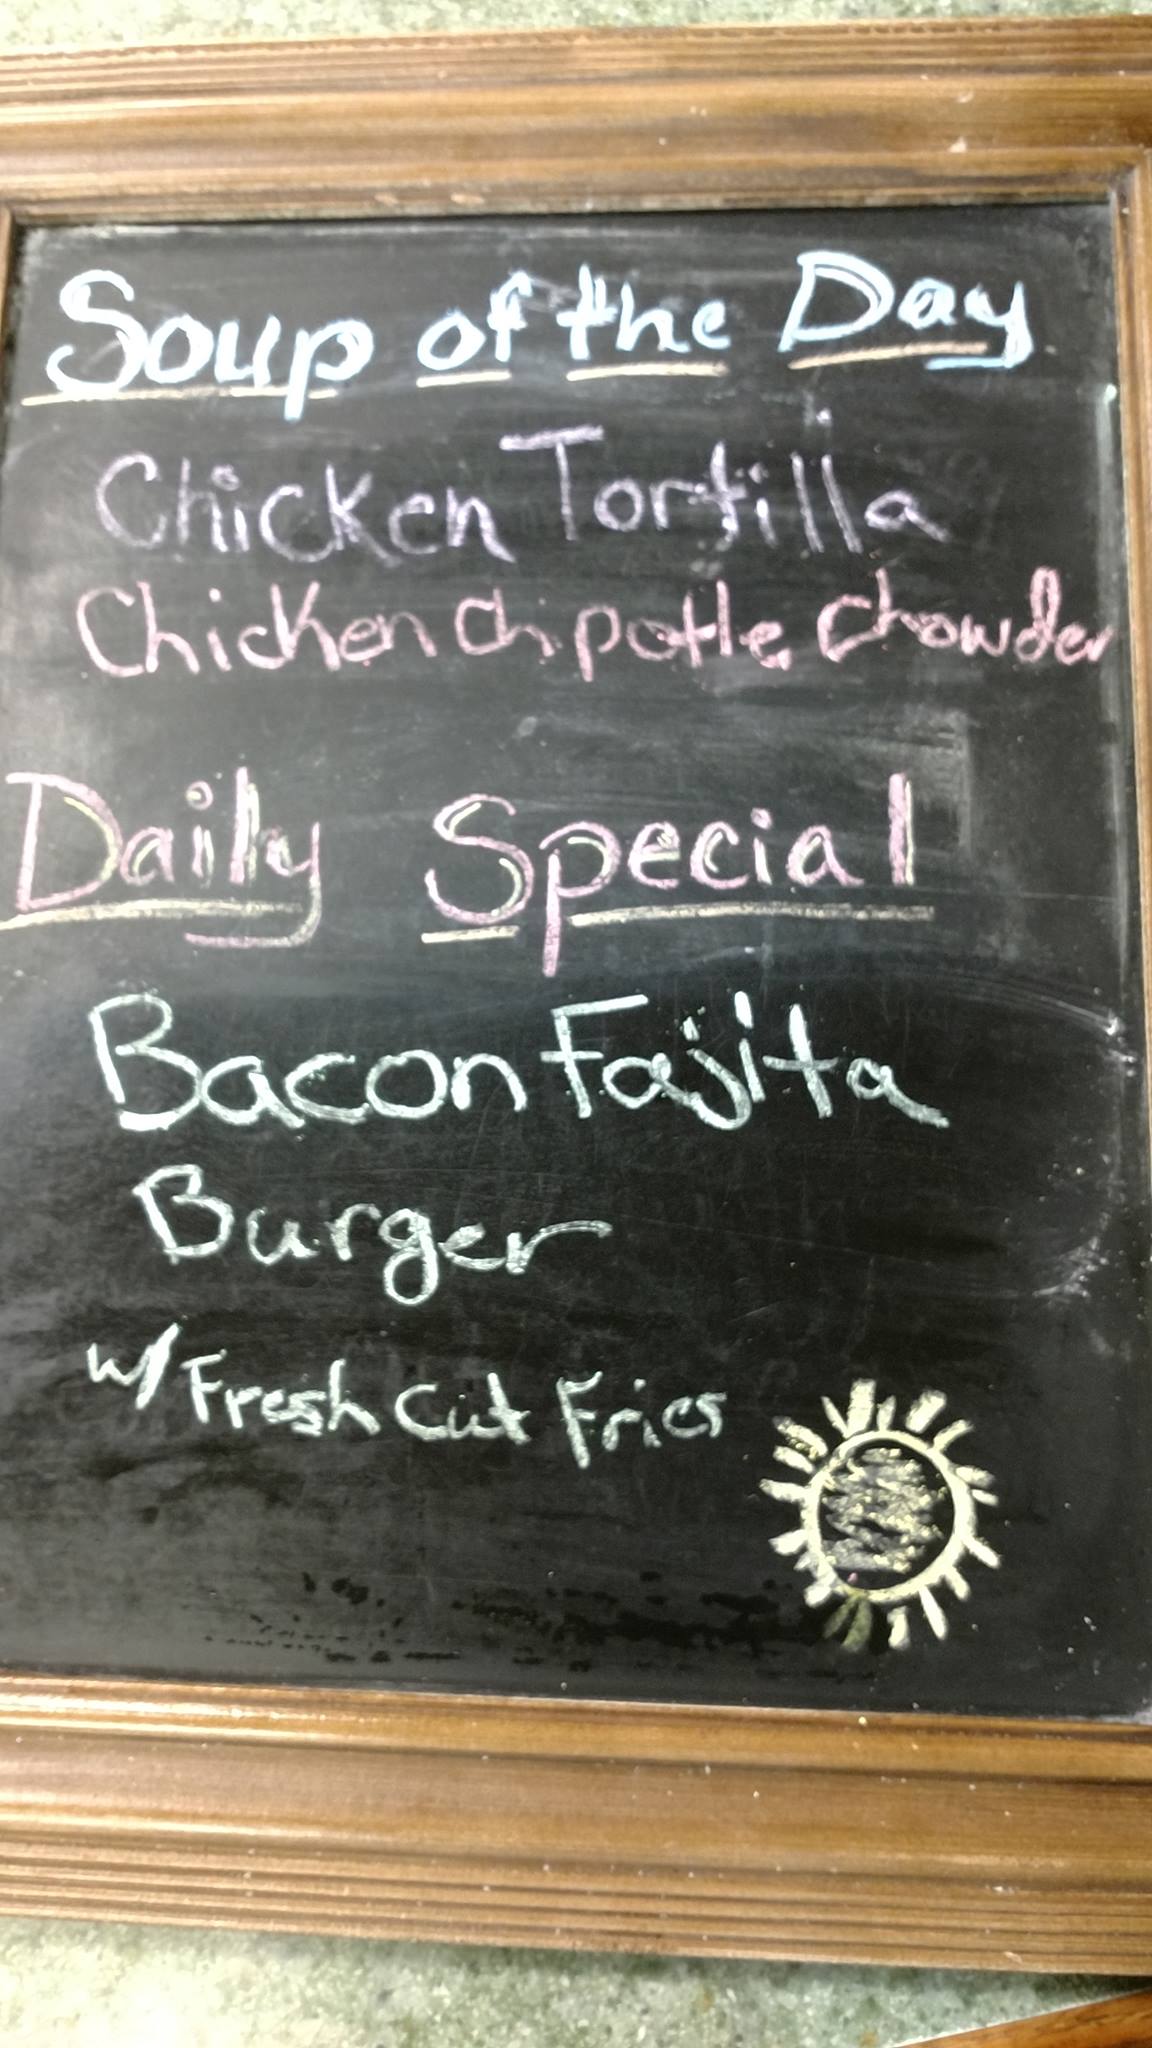 Soup of the Day
Chicken Tortilla
Chicken Chipotle Chowder
Daily Special
Bacon Fajita
Burger
w/ Fresh Cut Fries